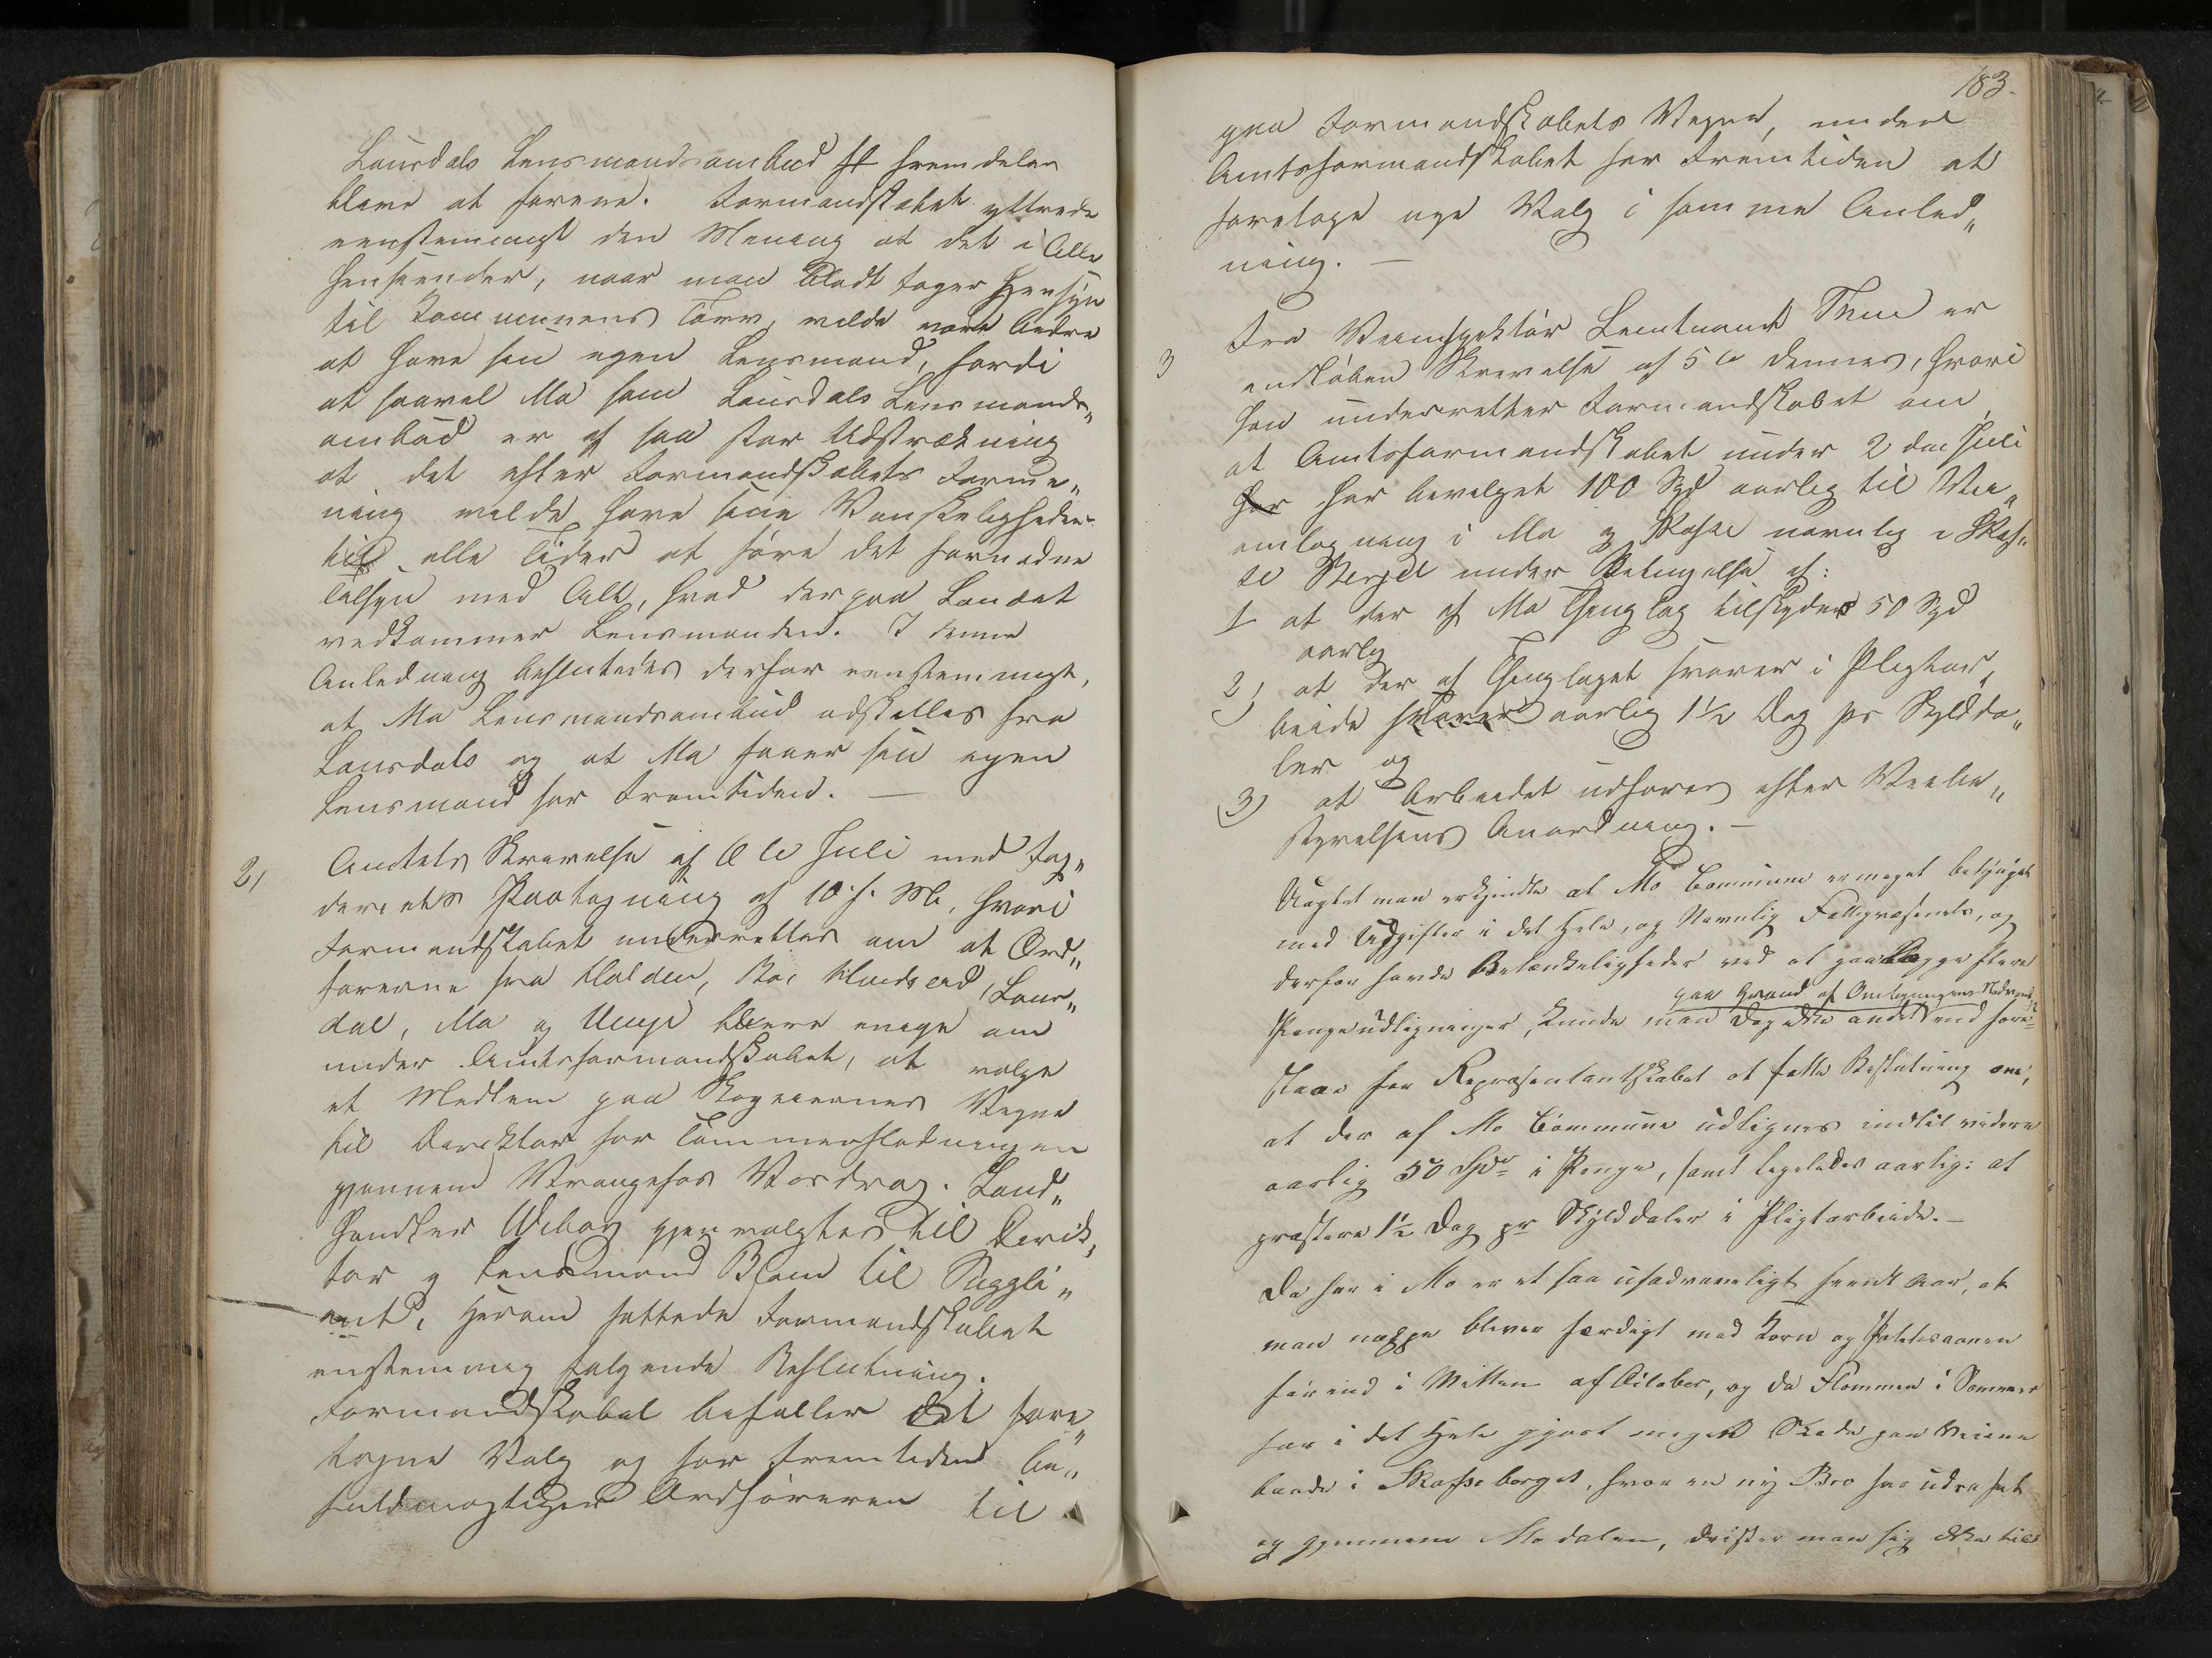 Laurdals Lensmandsombud ~~st~~ fremdeles
blive at forene. Formandskabet yttrede
eenstemmigt den Mening at det i Alle
Henseender, naar man blodt tager Hensyn
til Kommunens Tarv, vilde være bedre
at have sin egen Lensmand, fordi
at saavel Mo som Laurdals Lensmands„
ombud er af saa stor Udstrækning
at det efter Formandskabets Forme„
ning vilde have sine Vanskeligheder
til alle Tider at føre det fornødne
Tilsyn med Alt, hvad der paa Landet
vedkommer Lensmanden. I denne
Anledning besluttedes derfor eenstemmigt,
at Mo Lensmandsombud adskilles fra
Laurdals og at Mo faaer sin egen
Lensmand for Fremtiden. —
2, Amtets Skrivelse af 6te Juli med Fog„
deriets Paategning af 10 s. M., hvori
Formandskabet underrettes om at Ord„
førerne fra Holden, Bø, Hvidseid, Laur„
dal, Mo og Vinje blive enige om
under Amtsformandskabet, at vælge
et Medlem paa Skogeiernes Vegne
til Direktør for Tømmerflødningen
gjennem Vrangfos Vasdrag. Land„
handler Wiborg gjenvalgtes til Direk„
tør og Lensmand Blom til Suppli„
ant. Herom fattede Formandskabet
enstemmig følgende Beslutning.
Formandskabet bifalder det fore„
tagne Valg og for Fremtiden be„
fuldmægtiger Ordføreren til
183.
paa Formandskabets Vegne, under
Amtsformandskabet for Fremtiden at
foretage nye Valg i samme Anled„
ning. —
3 Fra Veiinspektør Lieutnant Thue er
indløben Skrivelse af 5te dennes, hvori
han underretter Formandskabet om,
at Amtsformandskabet under 2den Juli
~~har~~ har bevilget 100 Spd aarlig til Vei„
omlægning i Mo og Skafse navnlig i Skaf„
se Berget under Betingelse af:
1 at der af Mo Thinglag tilskydes 50 Spd
aarlig
2) at der af Thinglaget svarer i Pligtar„
beide ~~svarer~~ aarlig 1½ Dag pr Skyldda„
ler og
3) at Arbeidet udføres efter Veibe„
styrelsens Anordning. —
Uagtet man erkjendte at Mo Commune er meget betynget
med Udgifter i det Hele, og Navnlig Fattigvæsenets, og
derfor havde Betænkeligheder ved at paalægge flere
paa Grund af Omlægningens Nødvendig
Pengeudligninger, kunde man dog ikke andet end fore„
slaae for Repræsentantskabet at fatte Beslutning om,
at der af Mo Commune udlignes indtil videre
aarlig 50 Spd i Penge, samt ligeledes aarlig: at
præstere 1½ Dag pr Skylddaler i Pligtarbeide. —
Da her i Mo er et saa usædvaneligt seent Aar, at
man neppe bliver færdigt med Korn og Potetesaanen
før ind i Mitten af October, og da Flommen i Sommer
har i det Hele gjort meget Skade paa Veiene
baade i Skafseberget, hvor en ny Bro har udraset
og gjennem Modalen, drister man sig ikke til